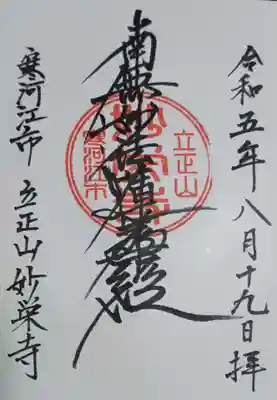 令和五年八月十九日拝
南無妙法蓮華経
立正山
寒河江市
寒河江市 立正山妙栄寺